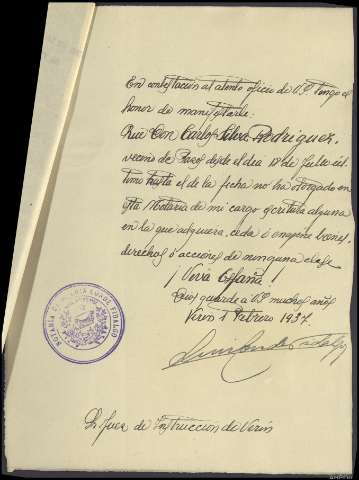 En contestación al atento oficio de V.S. tengo el
honor de manifestarle:
Que Don Carlos Silva Rodriguez,
vecino de Pazos desde el dia 18 de Julio úl-
timo hasta el de la fecha no ha otorgado en
esta Notaría de mi cargo escritura alguna
en la que adquiera, ceda o enagene bienes,
derechos o acciones de ninguna clase
¡Viva España!
Dios guarde a VS muchos años
Verin 1 Febrero 1937.
Sr. Juez de Instruccion de Verin
NOTARIA DE CONDE FIDALGO